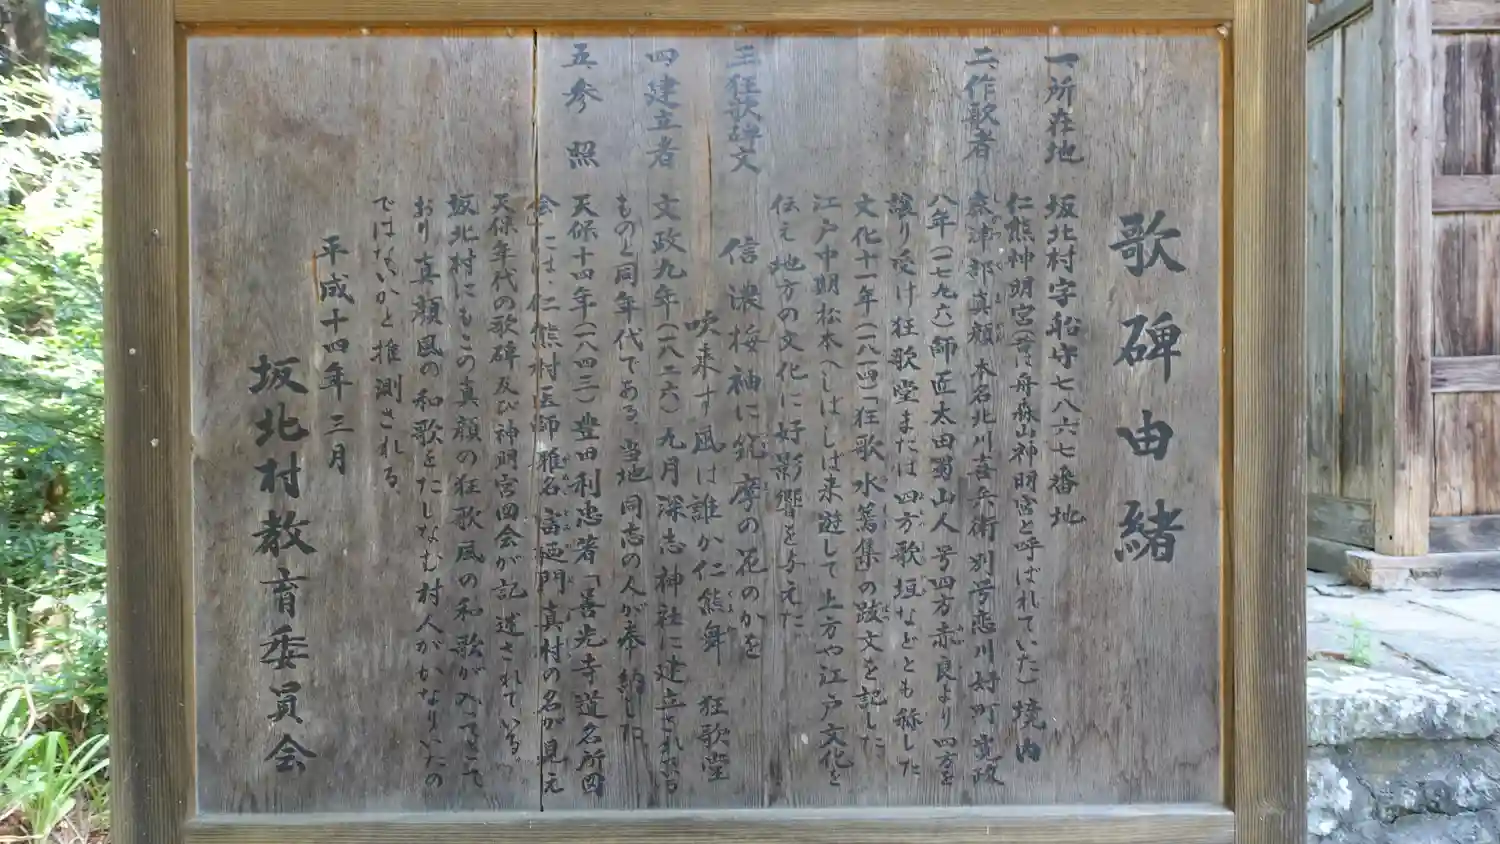 歌碑由緒
一、所在地 坂北村字船守七八六七番地
仁熊神明宮(昔は舟森山神明宮と呼ばれていた)境内
二、作歌者 鹿津部真顔 本名北川嘉兵衛 別号恋川好町 寛政
八年(一七九六)師匠太田蜀山人号四方赤良より四方を
譲り受け狂歌堂または四方歌垣などとも称した
文化十一年(一八一四)「狂歌水篶集」の跋文を記した
江戸中期松本へしばしば来遊して上方や江戸文化を
伝え地方の文化に好影響を与えた
三、狂歌碑文 信濃桜袖に筑摩の花のかを
吹来す風は誰か仁熊舞 狂歌堂
四、建立者 文政九年(一八二六)九月深志神社に建立された
ものと同年代である。当地同志の人が奉納した
五、参照 天保十四年(一八四三)豊田利忠著「善光寺道名所図
会」には、仁熊村医師雅名富栖門真村の名が見え
天保年代の歌碑及び神明宮図会が記述されている。
坂北村にもこの真顔の狂歌風の和歌が入ってきて
おり真顔風の和歌をたしなむ村人がかなりいたの
ではないかと推測される。
平成十四年三月
坂北村教育委員会